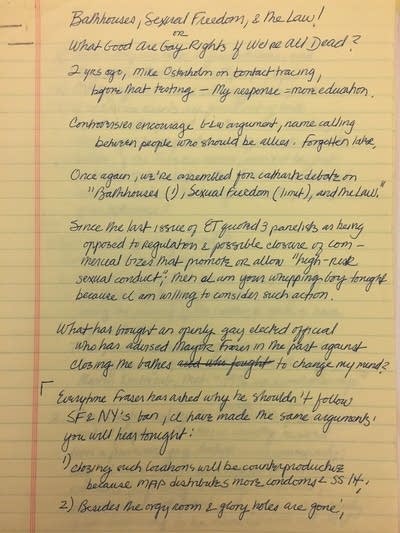 Bathhouses, Sexual Freedom, & the Law!
or
What Good Are Gay Rights If We're All Dead?
2 yrs ago, Mike Osterholm on contact tracing,
before that testing — My response = more education.
Controversies encourage b&w argument, name calling
between people who should be allies. Forgotten later,
Once again, we're assembled for cathartic debate on
"Bathhouses (!), Sexual Freedom (limit), and the Law."
Since the last issue of ET quoted 3 panelists as being
opposed to regulation & possible closure of com-
mercial bizes that promote or allow "high-risk
sexual conduct," then I am your whipping boy tonight
because I am willing to consider such action.
What has bought an openly gay elected official
who has advised Mayor Fraser in the past against
closing the baths and who fought to change my mind?
Everytime Fraser has asked why he shouldn't follow
SF & NY's ban, I have made the same arguments
you will hear tonight:
1) closing such locations will be counterproductive
because MAP distributes more condoms & SS lit.,
2) Besides the orgy room & glory holes are gone,